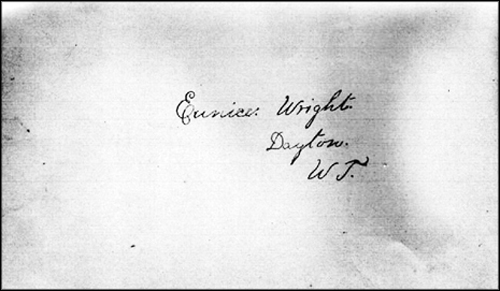 Eunice. Wright.
Dayton.
W T.